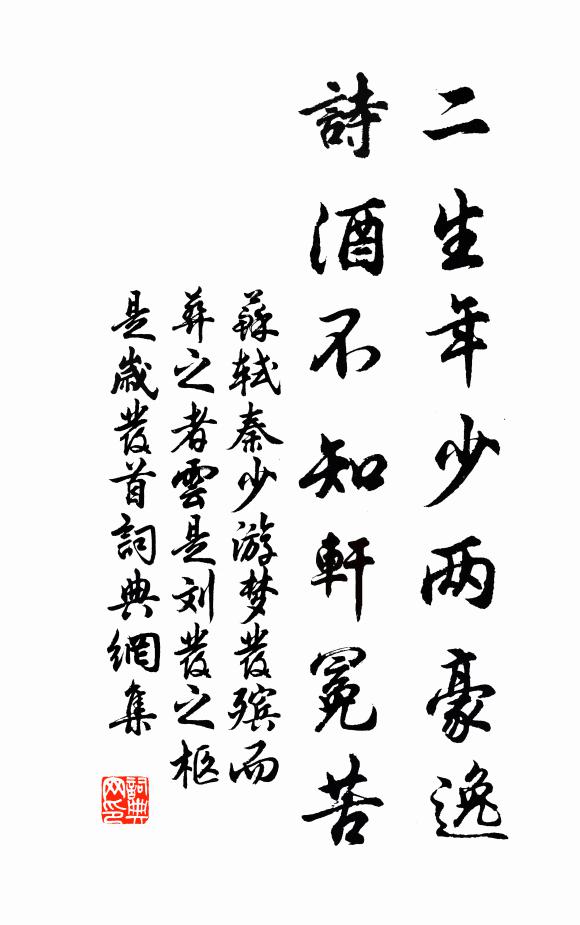 二生年少两豪逸
詩酒不知軒冕苦
蘇軾秦少游梦發殯而
葬之者雲是刘發之柩
是歲發首詞典網集
詞典网印